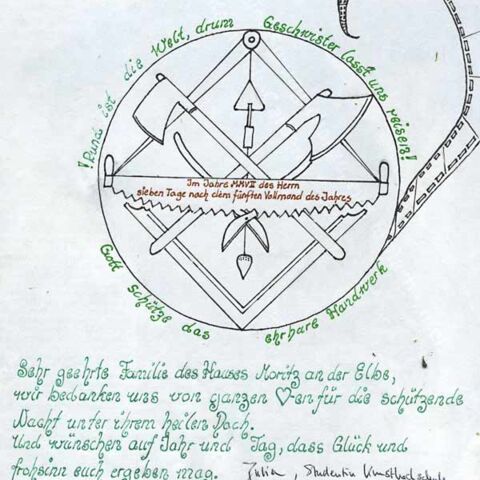 !Rund ist die Welt, drum Geschwister lasst uns reisen!
Im Jahre MMVII des Herrn
sieben Tage nach dem fünften Vollmond des Jahres
Gott schütze das ehrbare Handwerk
Sehr geehrte Familie des Hauses Moritz an der Elbe,
wir bedanken uns von ganzen ♡en für die schützende
Nacht unter ihrem heilen Dach.
Und wünschen auf Jahr und Tag, dass Glück und
frohsinn euch ergeben mag.
Julia, Studentin Kunsthochschule